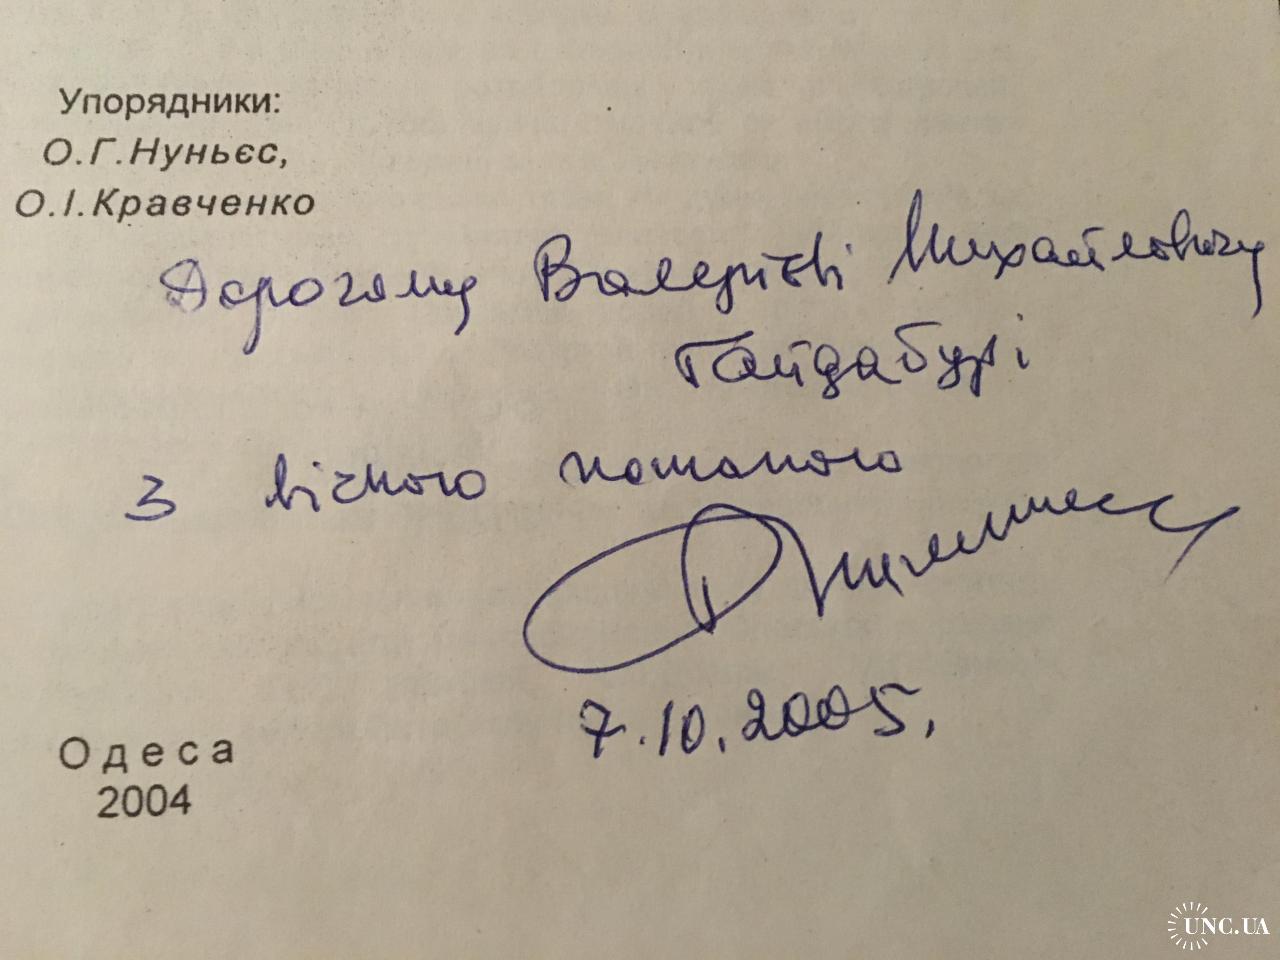 Упорядники:
О.Г.Нуньєс,
О.І.Кравченко
Дорогому Валерієві Михайловичу
Гайдабурі
з вічною пошаною
7.10.2005.
Одеса
2004
UNC.UA